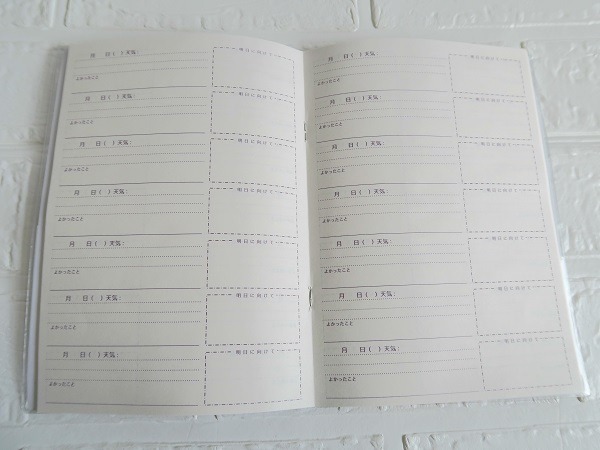 月　日(　)天気:
明日に向けて
よかったこと
月　日(　)天気:
明日に向けて
よかったこと
月　日(　)天気:
明日に向けて
よかったこと
月　日(　)天気:
明日に向けて
よかったこと
月　日(　)天気:
明日に向けて
よかったこと
月　日(　)天気:
明日に向けて
よかったこと
月　日(　)天気:
明日に向けて
よかったこと
月　日(　)天気:
明日に向けて
よかったこと
月　日(　)天気:
明日に向けて
よかったこと
月　日(　)天気:
明日に向けて
よかったこと
月　日(　)天気:
明日に向けて
よかったこと
月　日(　)天気:
明日に向けて
よかったこと
月　日(　)天気:
明日に向けて
よかったこと
月　日(　)天気:
明日に向けて
よかったこと